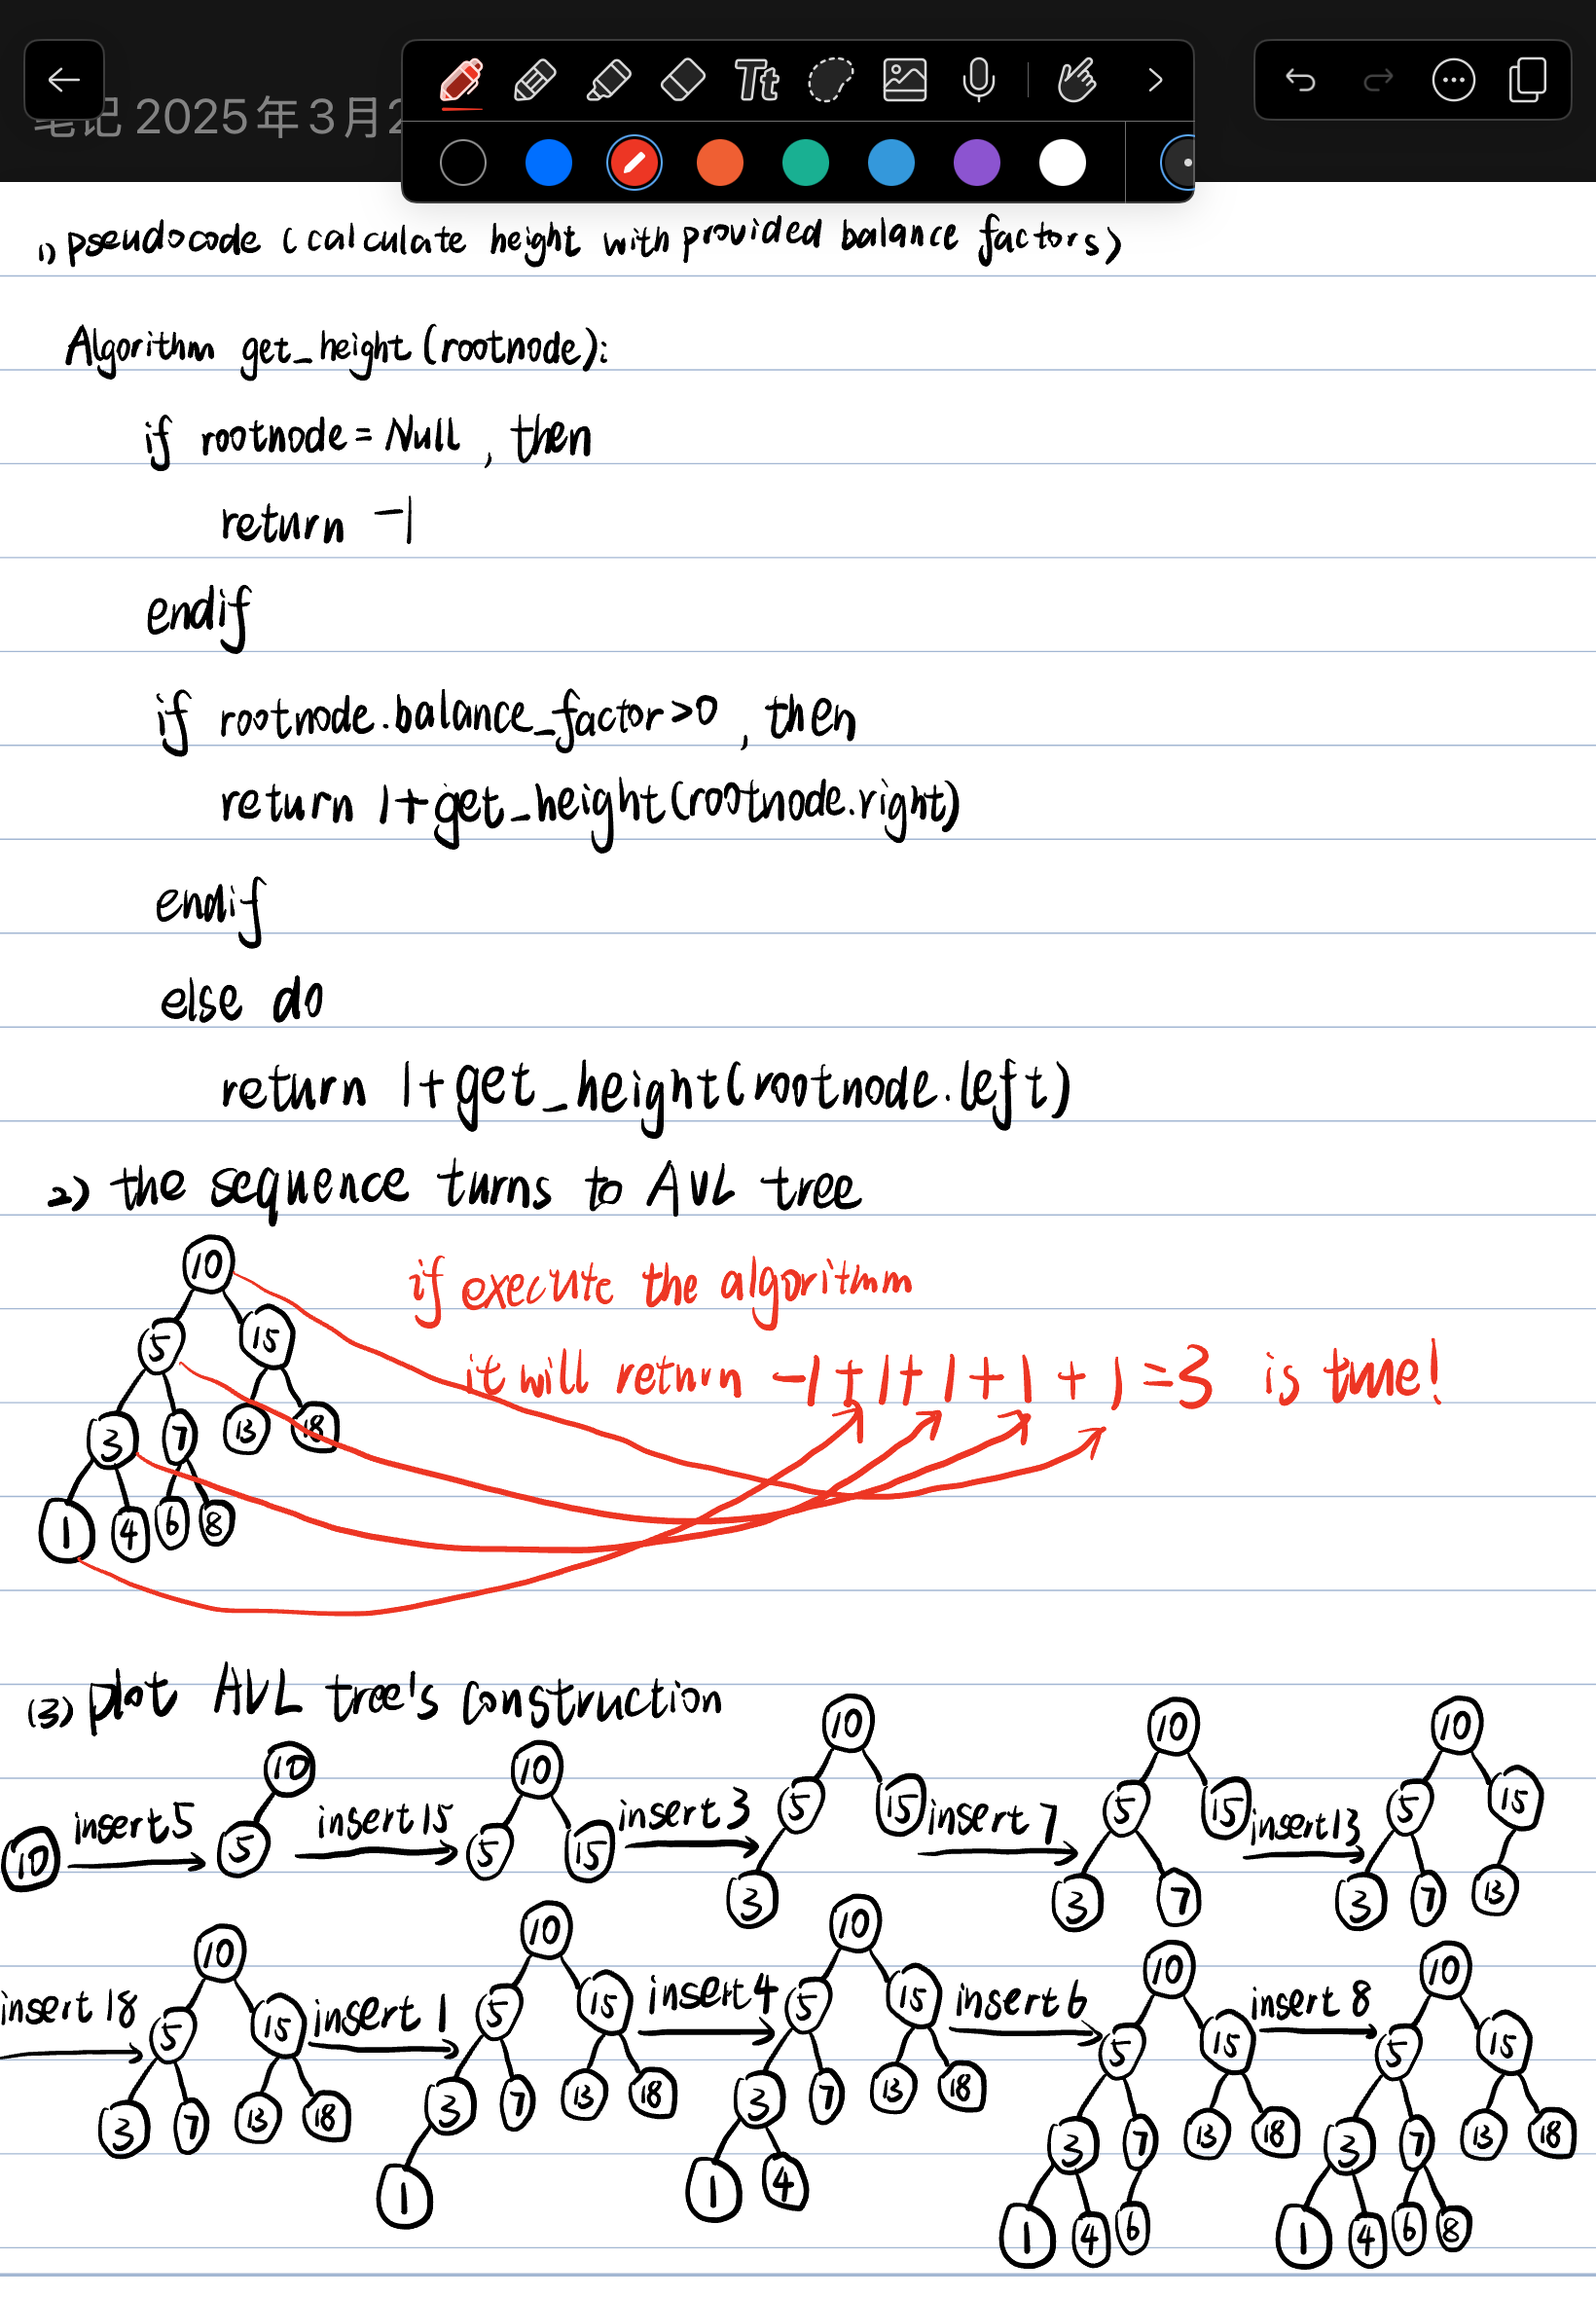 笔记 2025年3月2
Tt
1) pseudocode (calculate height with provided balance factors)
Algorithm get_height(rootnode):
if rootnode = Null, then
return -1
endif
if rootnode.balance_factor>0, then
return 1+get_height(rootnode.right)
endif
else do
return 1+get_height(rootnode.left)
2) the sequence turns to AVL tree
10
if execute the algorithm
5 15
it will return -1+1+1+1+1=3 is true!
3 7 13 18
1 4 6 8
(3) plot AVL tree's construction
10 insert 5 10 5 insert 15 10 5 15 insert 3 10 5 15 3 insert 7 10 5 15 3 7 insert 13 10 5 15 3 7 13
insert 18 10 5 15 3 7 13 18 insert 1 10 5 15 3 7 13 18 1 insert 4 10 5 15 3 7 13 18 1 4 insert 6 10 5 15 3 7 13 18 1 4 6 insert 8 10 5 15 3 7 13 18 1 4 6 8